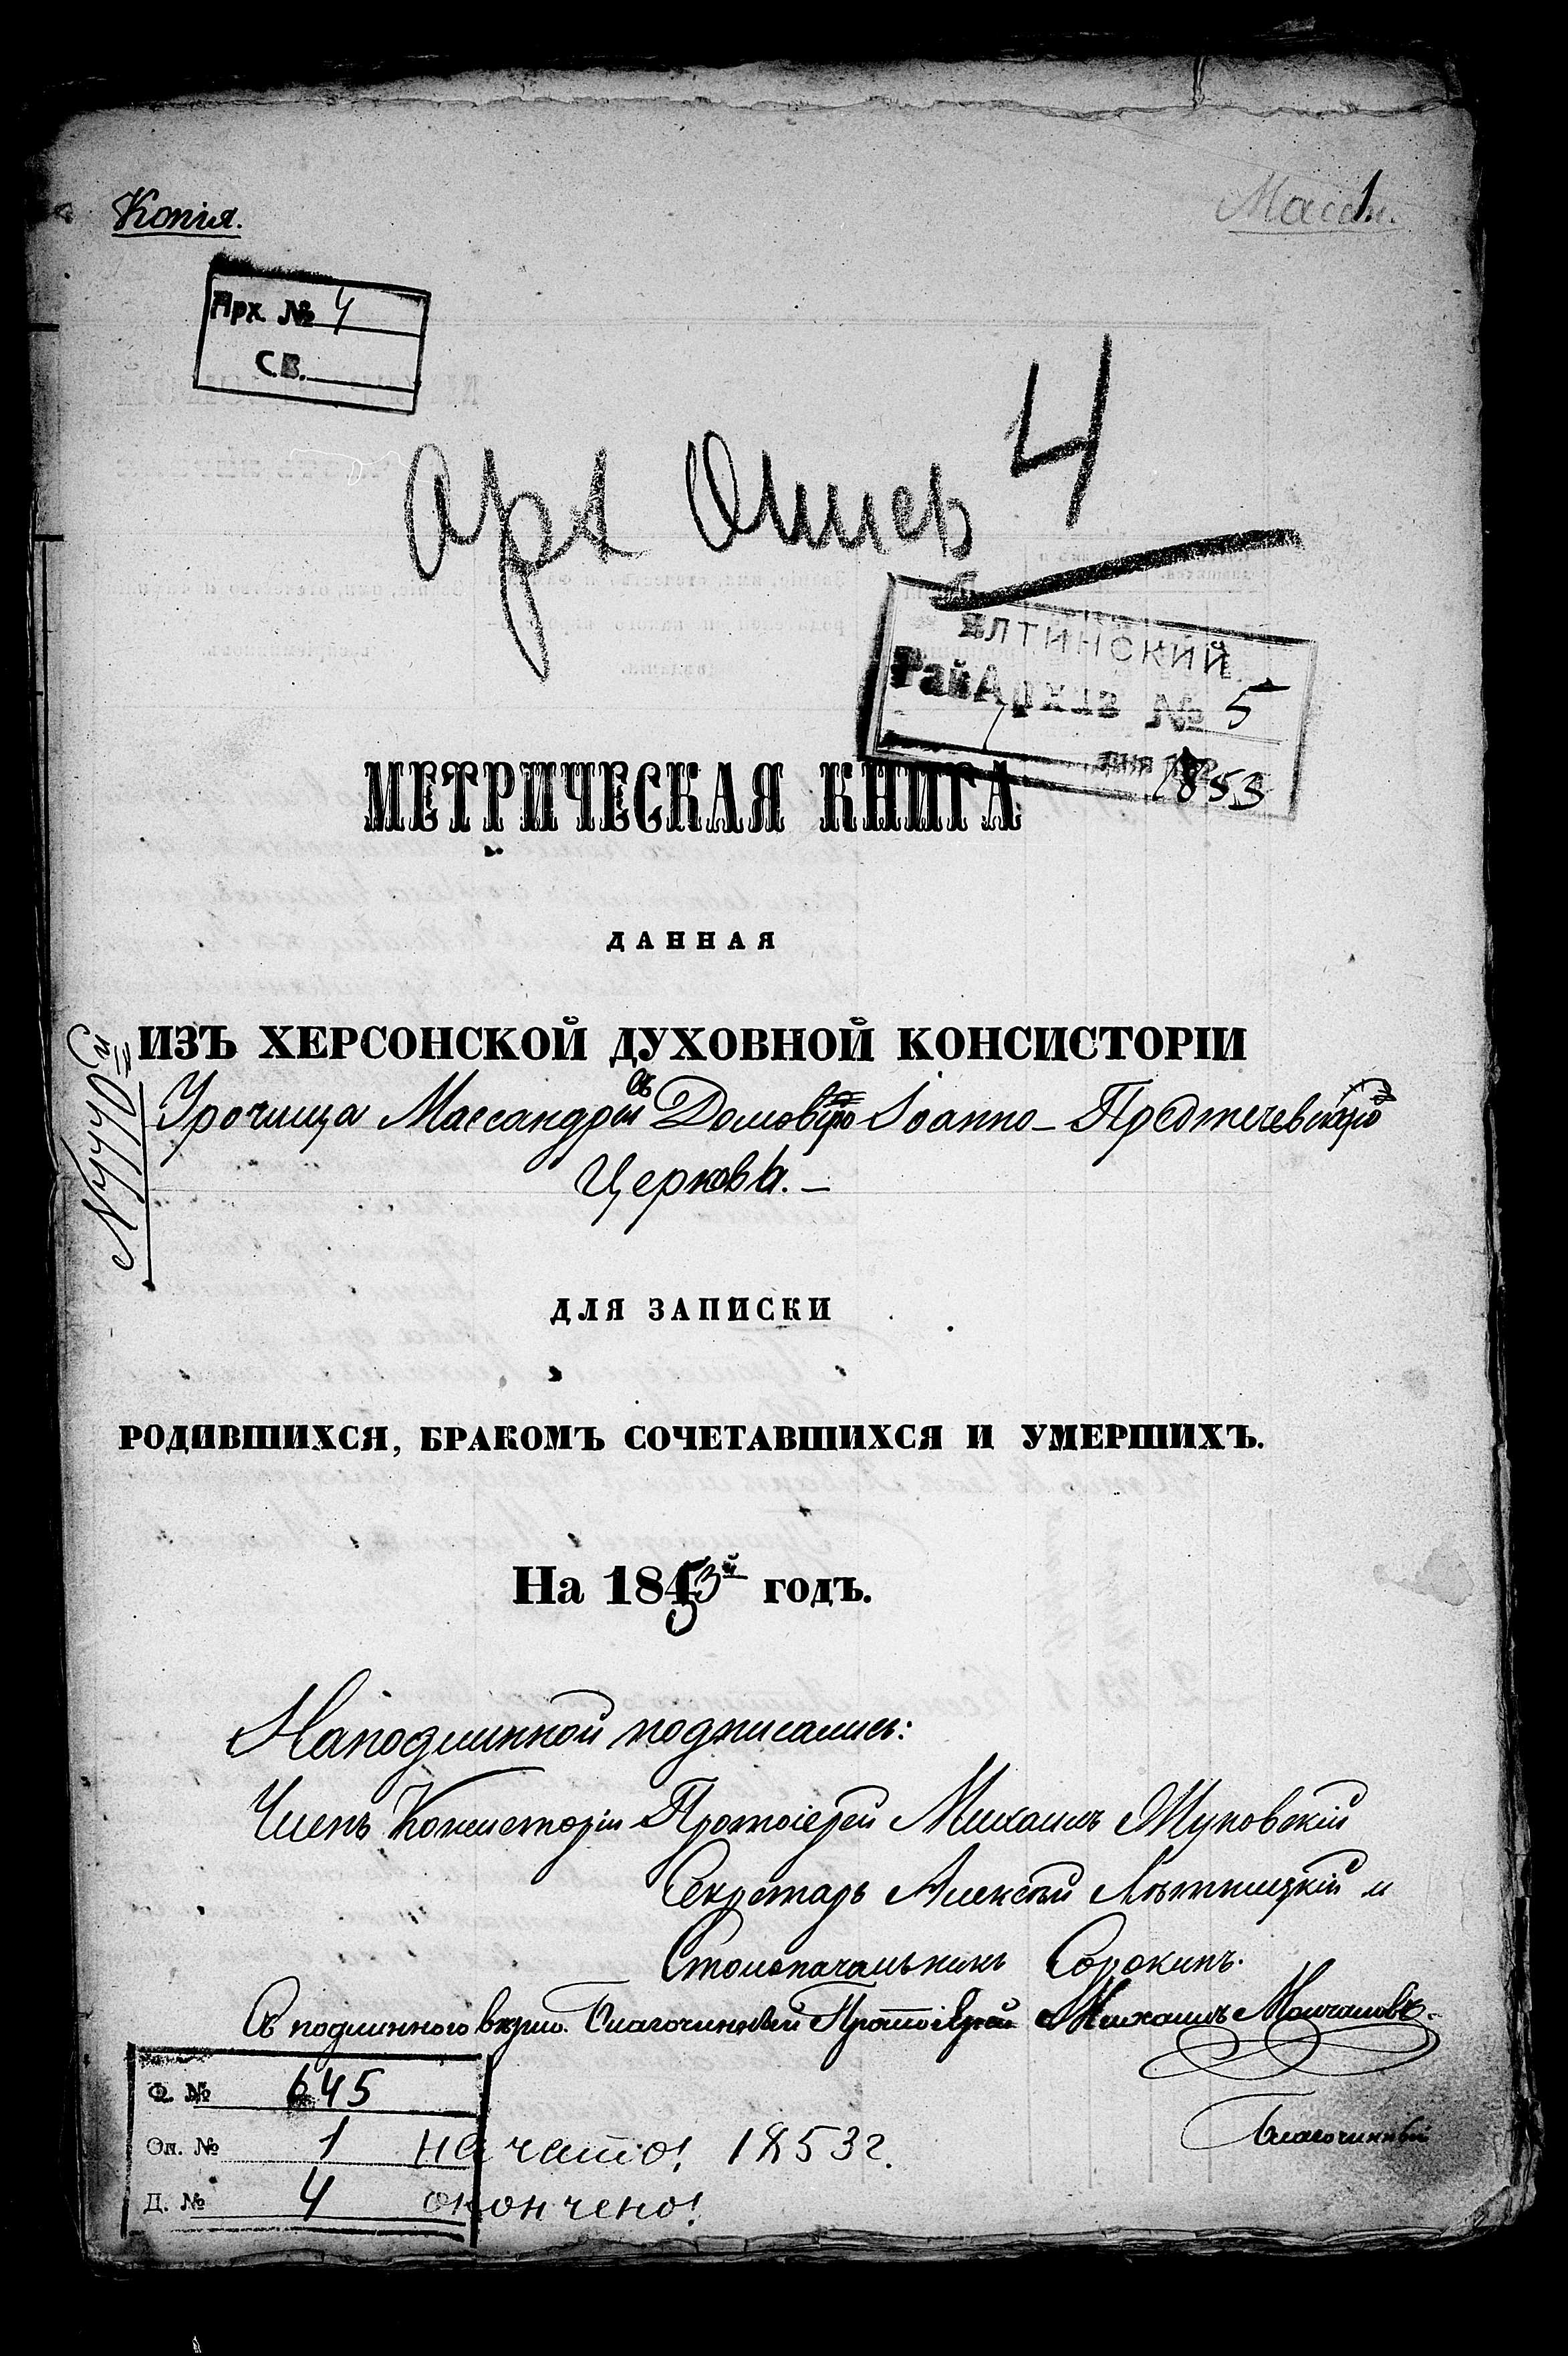 Копія.
1
Арх. № 4
С.В.
арх 4
ЯЛТИНСКИЙ
РайАрхив № 5
дня
1853
МЕТРИЧЕСКАЯ КНИГА
ДАННАЯ
ИЗЪ ХЕРСОНСКОЙ ДУХОВНОЙ КОНСИСТОРІИ
Урочища Массандры въ Домовую Іоанно-Предтечевскую
Церковь.-
ДЛЯ ЗАПИСКИ
РОДИВШИХСЯ, БРАКОМЪ СОЧЕТАВШИХСЯ И УМЕРШИХЪ.
На 1853й годъ.
На подлинной подписались:
Членъ Консисторіи Протоіерей Михаилъ Жуковскій
Секретарь Алексѣй Лѣтницкій и
Столоначальникъ Сорокинъ.
Съ подлинного вѣрно. Благочинный Протоіерей Михаилъ Молчановъ.
Благочинный
Ф. № 645
Оп. № 1
Д. № 4
начато! 1853г.
окончено!